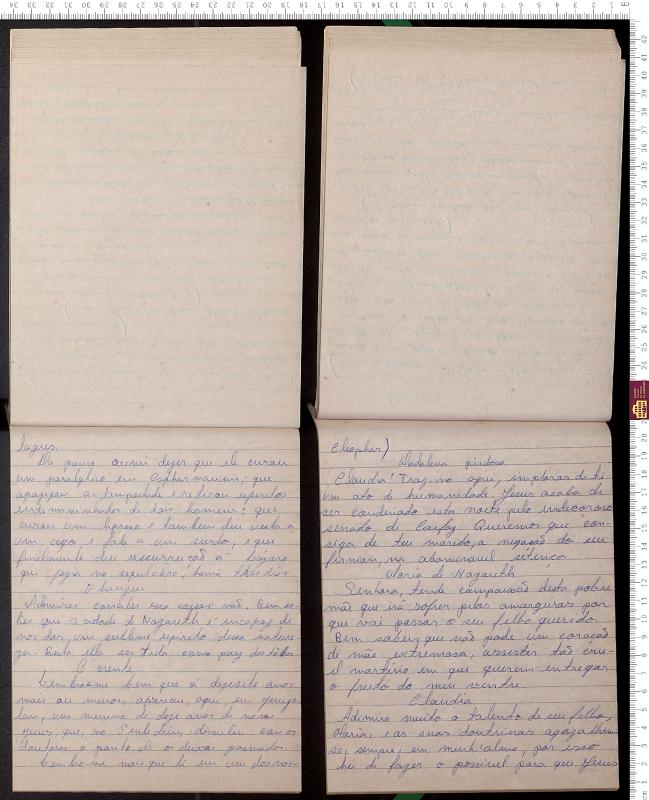 lagres.
Ha pouco ouvi dizer que ele curou
um paralytico em Capharnaum; que
apazigou a tempestade e retirou espiritos
endemoninhados de dois homens; que
curou um leproso e tambem deu vista a
um cego e fala a um surdo, e que
finalmente deu ressurreicão a Lazaro
que jazia no sepulchro, havia três dias
O
Admiras causeles essa cousas não. Bem sa-
bes que a cidade de Nazareth é incapaz de
nos dar, um sublime espirito dessa nature-
za. Basta ella ser tida como paiz dos
O crente
Lembro-me bem que á dezesete anos
mais ou menos, apareceu, aqui, em Jeruza-
lem, um menino de doze anos de nome
Jesus, que, no Senhedrim, descutiu com os
doutores a ponto de os deixar pasmados.
Lembro-me mais que li em um dos nos-
Cleophas)
Madalena piedosa
Claudia! Traz-no aqui, implorar de ti
um ato de humanidade. Jesus acaba de
ser condenado esta noite pelo indecoroso
senado de Caifaz. Queremos que con-
siga de teu marido, a negasão do seu
firman, na abominavel sitença
Maria de Nazareth
Senhora, tende compaixão desta pobre
mãe que irá sofrer pelas amarguras por
que vai passar o seu filho querido.
Bem sabeis que não pode um coração
de mãe estremosa, assistir tão cru-
el martirio em que querem entregar
o fruto do meu ventre
Claudia
Admiro muito o talento de seu filho,
Maria, e as suas doutrinas agazalham
se, sempre, em minh'alma, por isso
hei de fazer o possivel para que Jesus